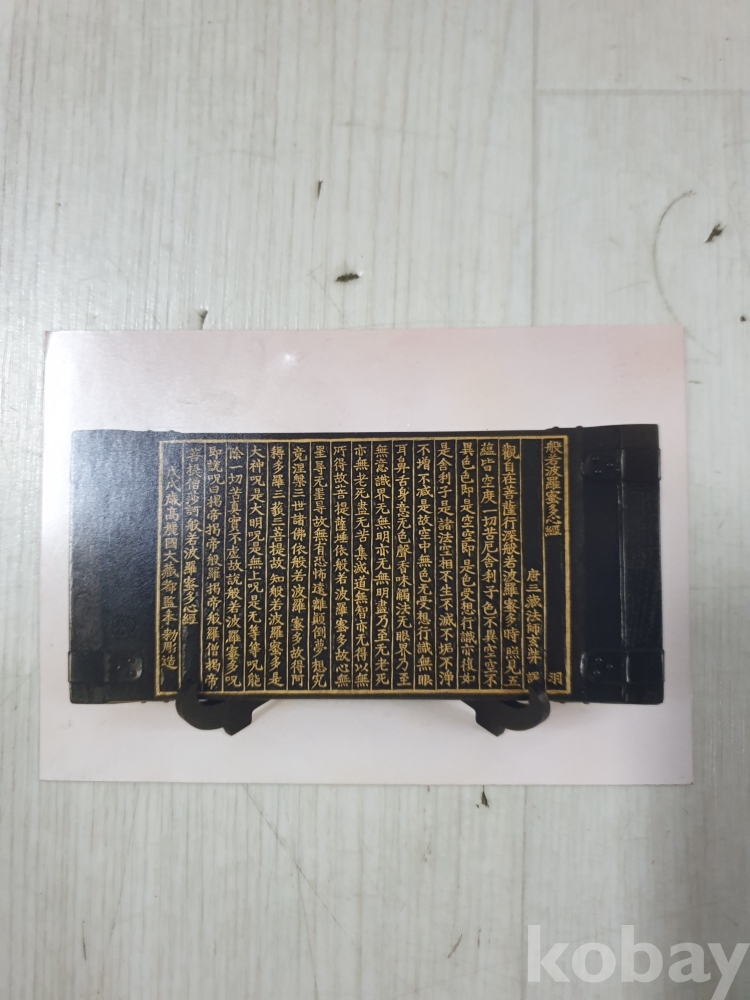 般若波羅蜜多心經 羽
唐三藏法師玄奘 譯
觀自在菩薩行深般若波羅蜜多時照見五
蘊皆空度一切苦厄舍利子色不異空空不
異色色即是空空即是色受想行識亦復如
是舍利子是諸法空相不生不滅不垢不淨
不增不減是故空中無色无受想行識無眼
耳鼻舌身意无色聲香味觸法无眼界乃至
無意識界无無明亦无無明盡乃至无老死
亦無老死盡无苦集滅道無智亦无得以無
所得故菩提薩埵依般若波羅蜜多故心無
罣㝵无罣㝵故無有恐怖遠離顛倒夢想究
竟涅槃三世諸佛依般若波羅蜜多故得阿
耨多羅三藐三菩提故知般若波羅蜜多是
大神呪是大明呪是無上呪是无等等呪能
除一切苦真實不虛故說般若波羅蜜多呪
即說呪曰揭帝揭帝般羅揭帝般羅僧揭帝
菩提僧莎訶般若波羅蜜多心經
戊戌歲高麗國大藏都監奉 勅彫造
kobay